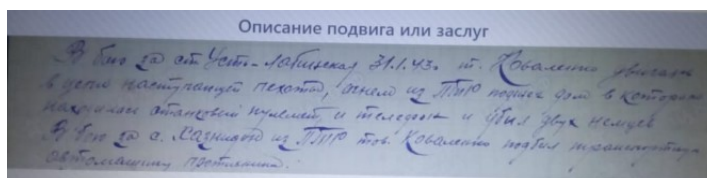 Описание подвига или заслуг
В бою за ст. Усть-Лабинская 31.1.43г. т. Коваленко двигаясь
в цепи наступающей пехоты, огнем из ПТР поджег дом в котором
находился станковый пулемет, и телефон и убил двух немцев
В бою за с. из ПТР тов. Коваленко подбил транспортную
автомашину противника.